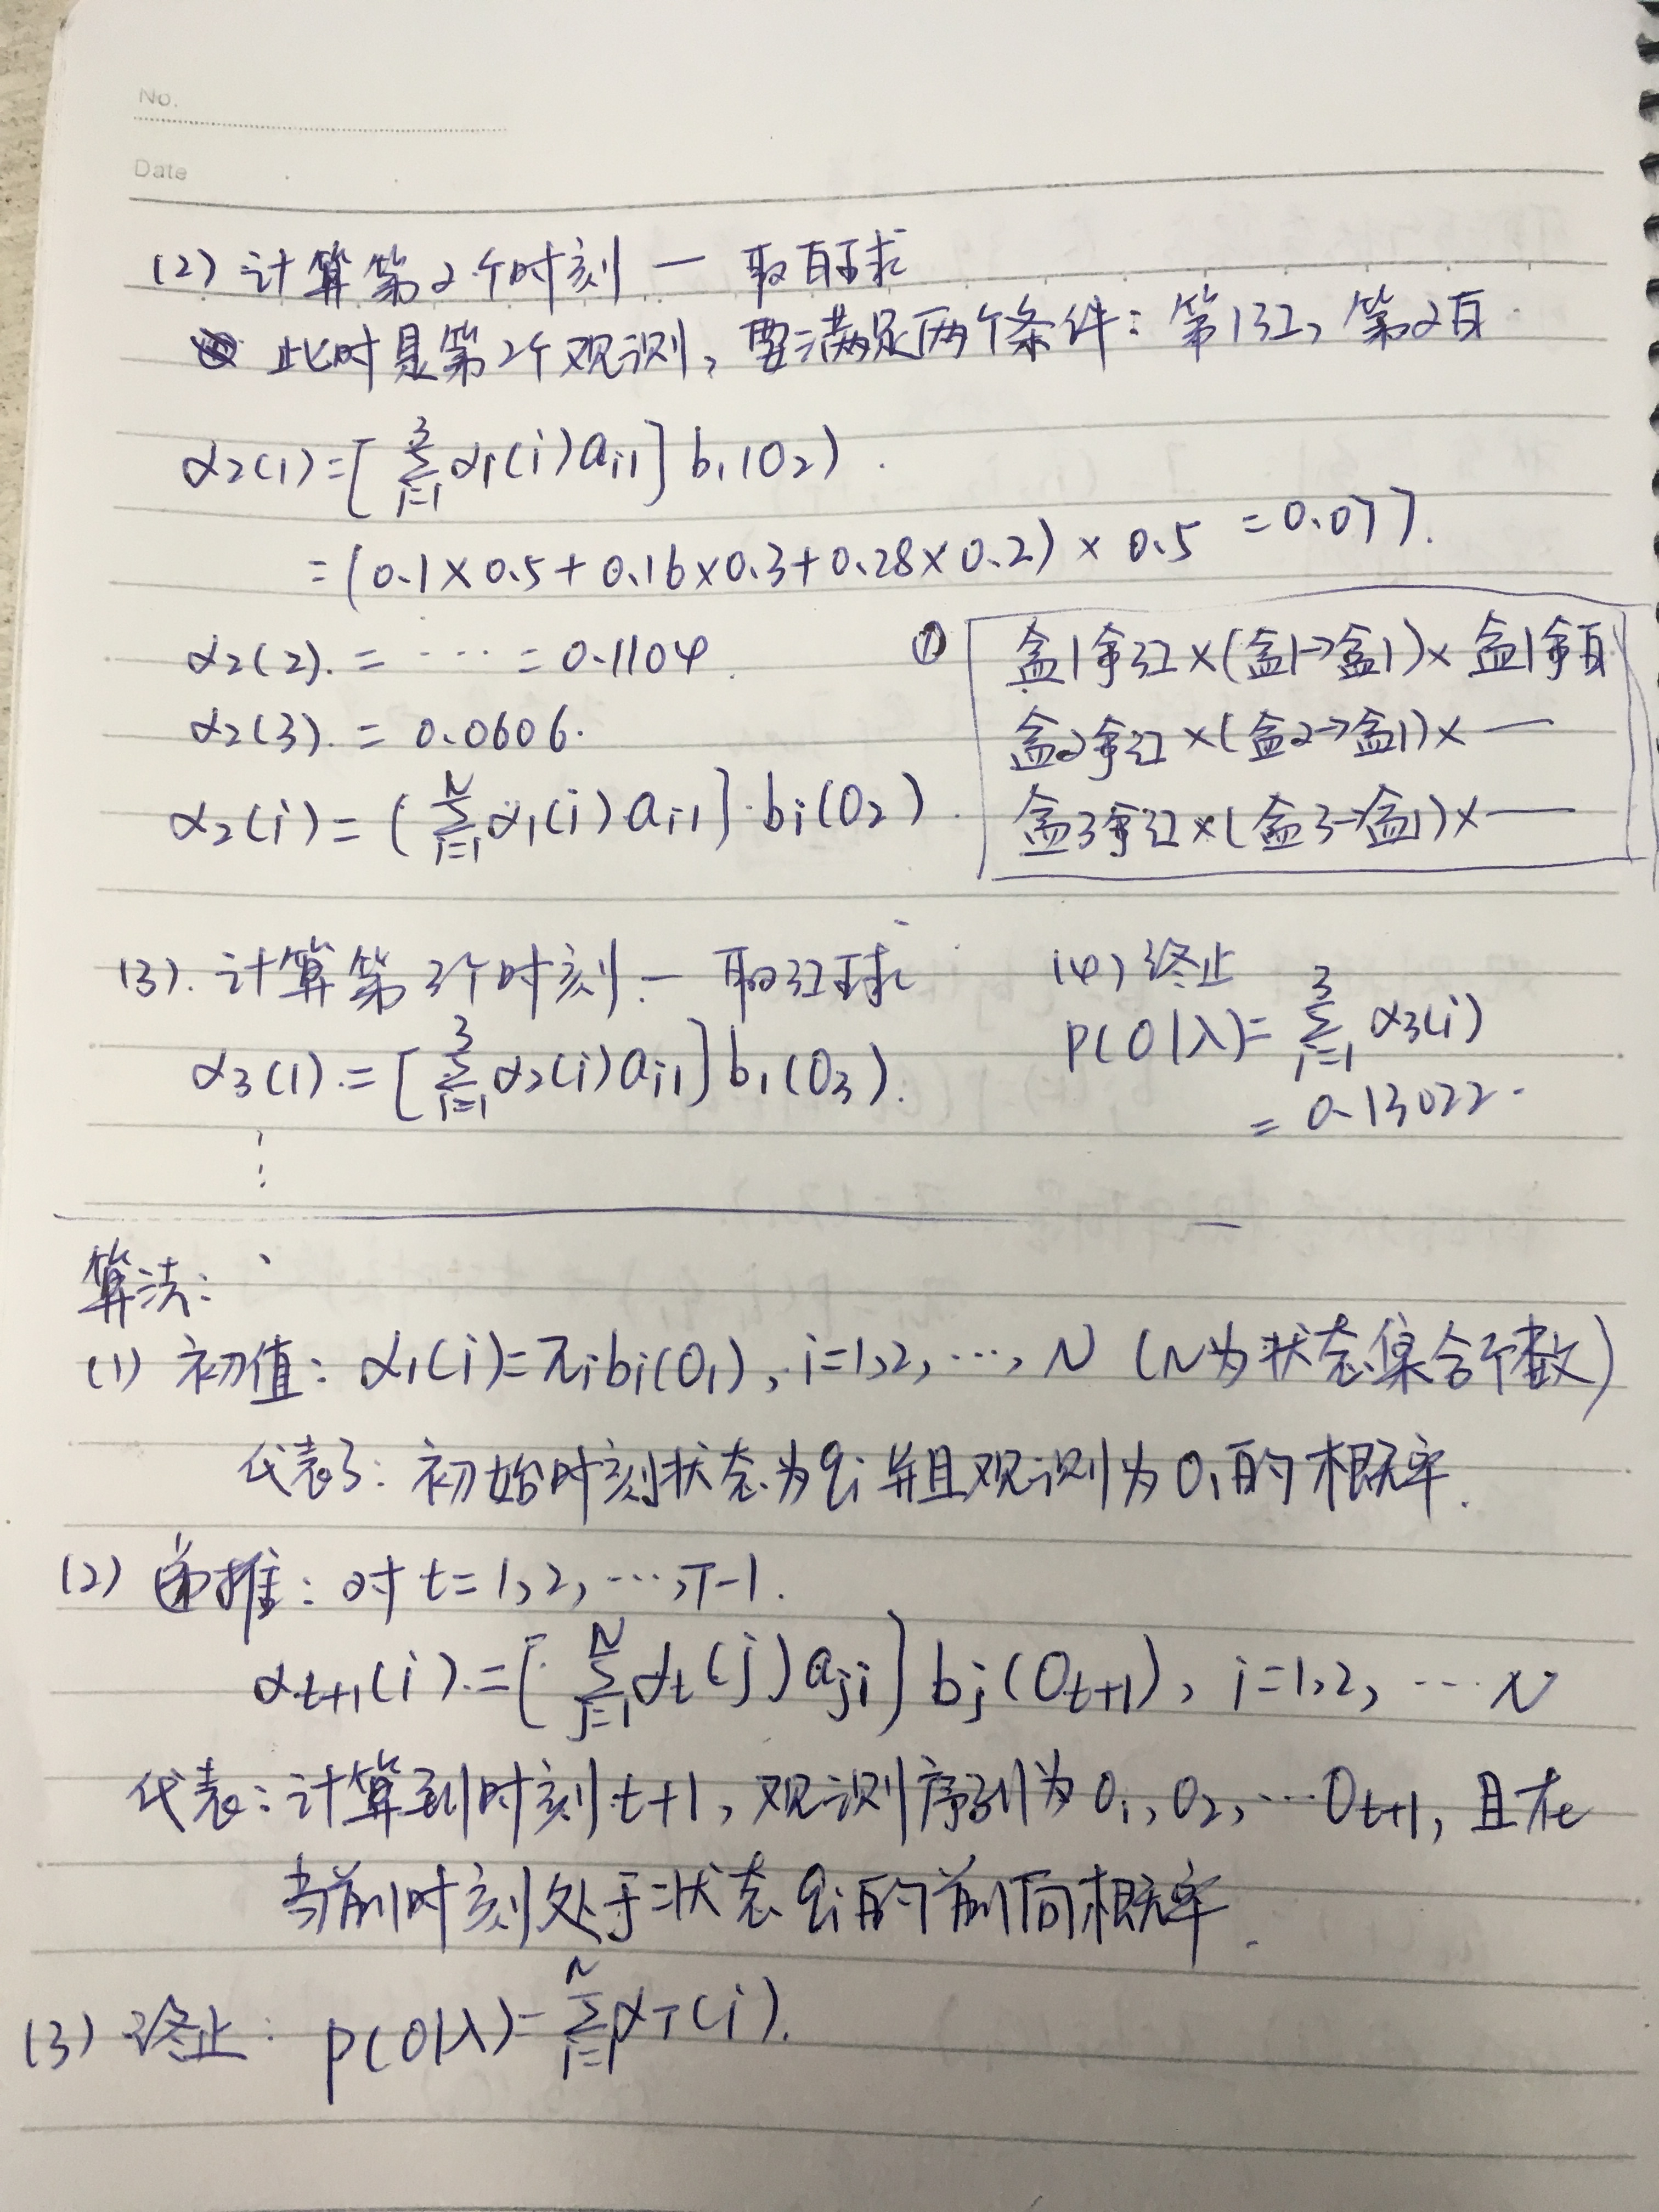 No.
Date
(2) 计算第2个时刻 — 取白球
此时是第2个观测, 要满足两个条件: 第1红, 第2白
α₂(1)=[∑³ᵢ₌₁ α₁(i)aᵢ₁] b₁(O₂)
=(0.1×0.5+0.16×0.3+0.28×0.2)×0.5 =0.077.
α₂(2). = ···· = 0.1104.
α₂(3). = 0.0606.
α₂(i) = (∑ᴺᵢ₌₁ α₁(i)·aᵢ₁]·bᵢ(O₂).
① 盒1拿红×(盒1→盒1)× 盒1拿白
盒2拿红×(盒2→盒1)×—
盒3拿红×(盒3→盒1)×—
(3). 计算第3个时刻 — 取红球
α₃(1).=[∑³ᵢ₌₁ α₂(i)aᵢ₁]b₁(O₃).
⋮
(4) 终止
P(O|λ)=∑³ᵢ₌₁ α₃(i)
= 0.13022.
算法:
(1) 初值: α₁(i)=πᵢbᵢ(O₁), i=1,2,···, N (N为状态集合个数)
代表了: 初始时刻状态为qᵢ并且观测为O₁的概率.
(2) 递推: 对t=1,2,···,T-1.
αₜ₊₁(i).=[∑ᴺⱼ₌₁ αₜ(j)aⱼᵢ] bⱼ(Oₜ₊₁), i=1,2, ···N
代表: 计算到时刻t+1, 观测序列为O₁,O₂,···Oₜ₊₁, 且在
当前时刻处于状态qᵢ的前向概率.
(3) 终止: P(O|λ)=∑ᴺᵢ₌₁ α_T(i).